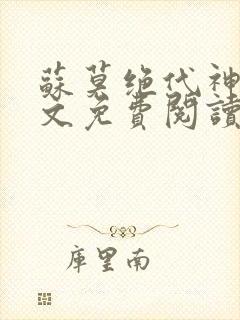 蘇莫绝代神
文免費閱讀
库里南